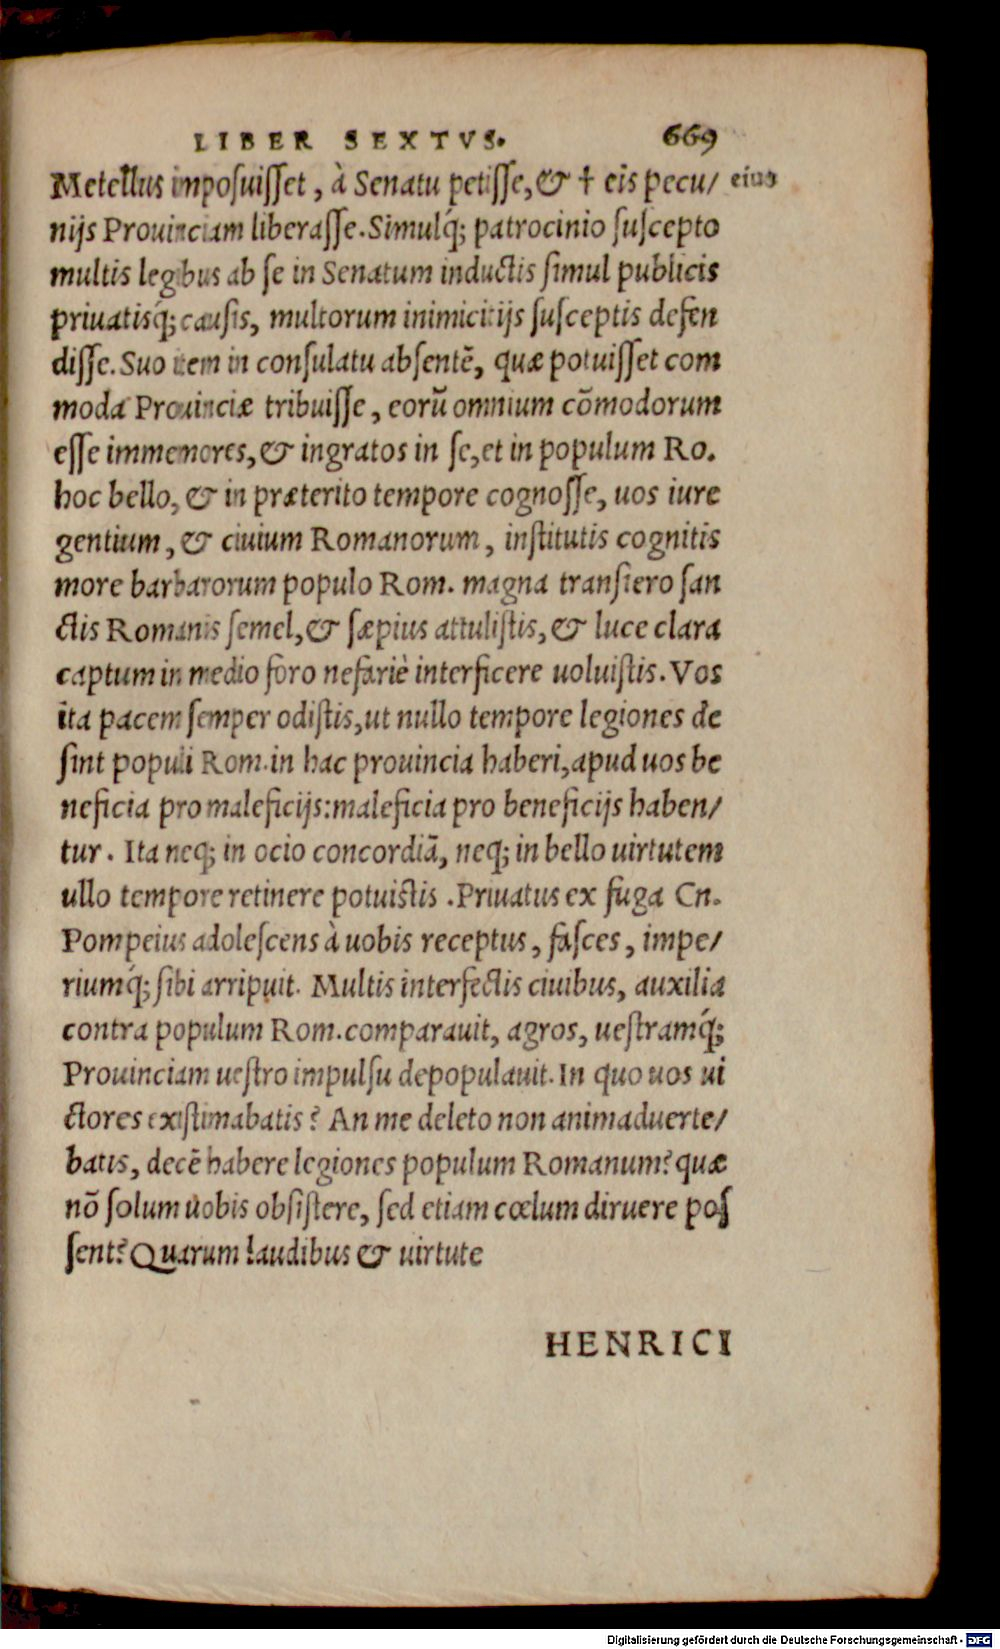 LIBER SEXTVS. 669
Metellus imposuisset, à Senatu petisse, & † eis pecu/ eius
nijs Prouinciam liberasse. Simulq́; patrocinio suscepto
multis legibus ab se in Senatum inductis simul publicis
priuatisq́; causis, multorum inimicitijs susceptis defen
disse. Suo item in consulatu absentē, quæ potuisset com
moda Prouinciæ tribuisse, eorū omnium cōmodorum
esse immemores, & ingratos in se, et in populum Ro.
hoc bello, & in præterito tempore cognosse, uos iure
gentium, & ciuium Romanorum, institutis cognitis
more barbarorum populo Rom. magna transiero san
ctis Romanis semel, & sæpius attulistis, & luce clara
captum in medio foro nefariè interficere uoluistis. Vos
ita pacem semper odistis, ut nullo tempore legiones de
sint populi Rom. in hac prouincia haberi, apud uos be
neficia pro maleficijs: maleficia pro beneficijs haben/
tur. Ita neq; in ocio concordiā, neq; in bello uirtutem
ullo tempore retinere potuistis. Priuatus ex fuga Cn.
Pompeius adolescens à uobis receptus, fasces, impe/
riumq́; sibi arripuit. Multis interfectis ciuibus, auxilia
contra populum Rom. comparauit, agros, uestramq́;
Prouinciam uestro impulsu depopulauit. In quo uos ui
ctores existimabatis? An me deleto non animaduerte/
batis, decē habere legiones populum Romanum? quæ
nō solum uobis obsistere, sed etiam cœlum diruere pos
sent? Quarum laudibus & uirtute
HENRICI
Digitalisierung gefördert durch die Deutsche Forschungsgemeinschaft - DFG